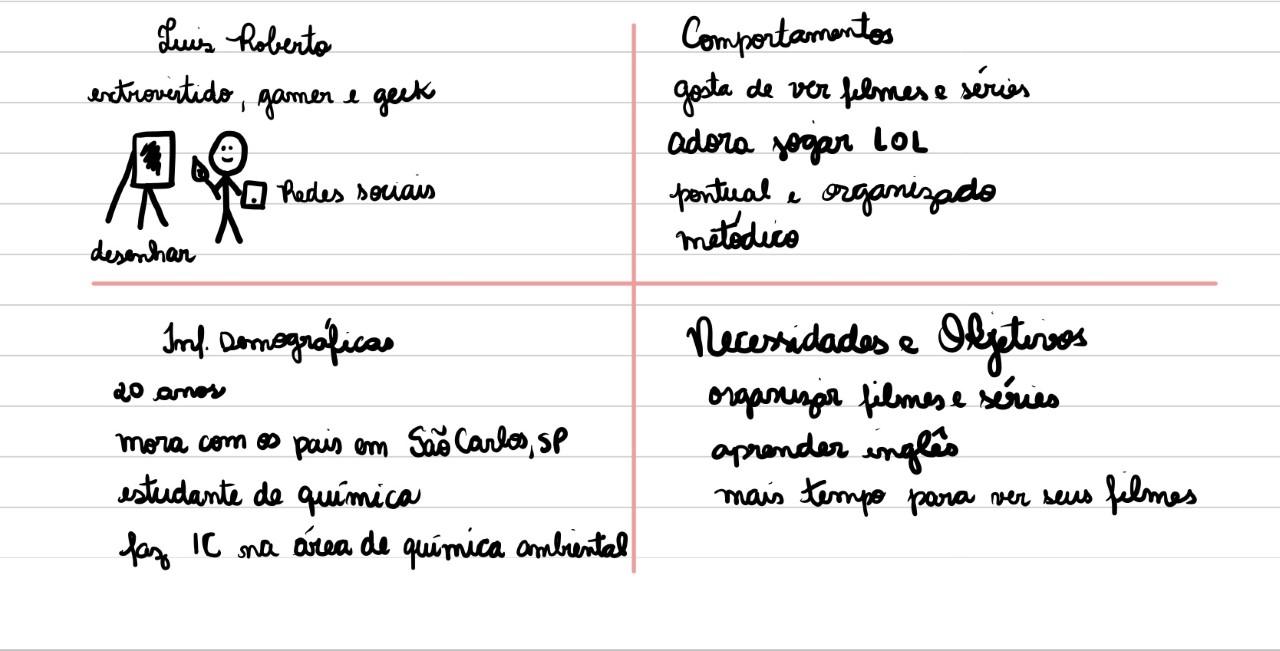 Luis Roberto
extrovertido, gamer e geek
Redes sociais
desenhar
Comportamentos
gosta de ver filmes e séries
adora jogar LOL
pontual e organizado
metódico
Inf. Demográficas
20 anos
mora com os pais em São Carlos, SP
estudante de química
faz IC na área de química ambiental
Necessidades e Objetivos
organizar filmes e séries
aprender inglês
mais tempo para ver seus filmes